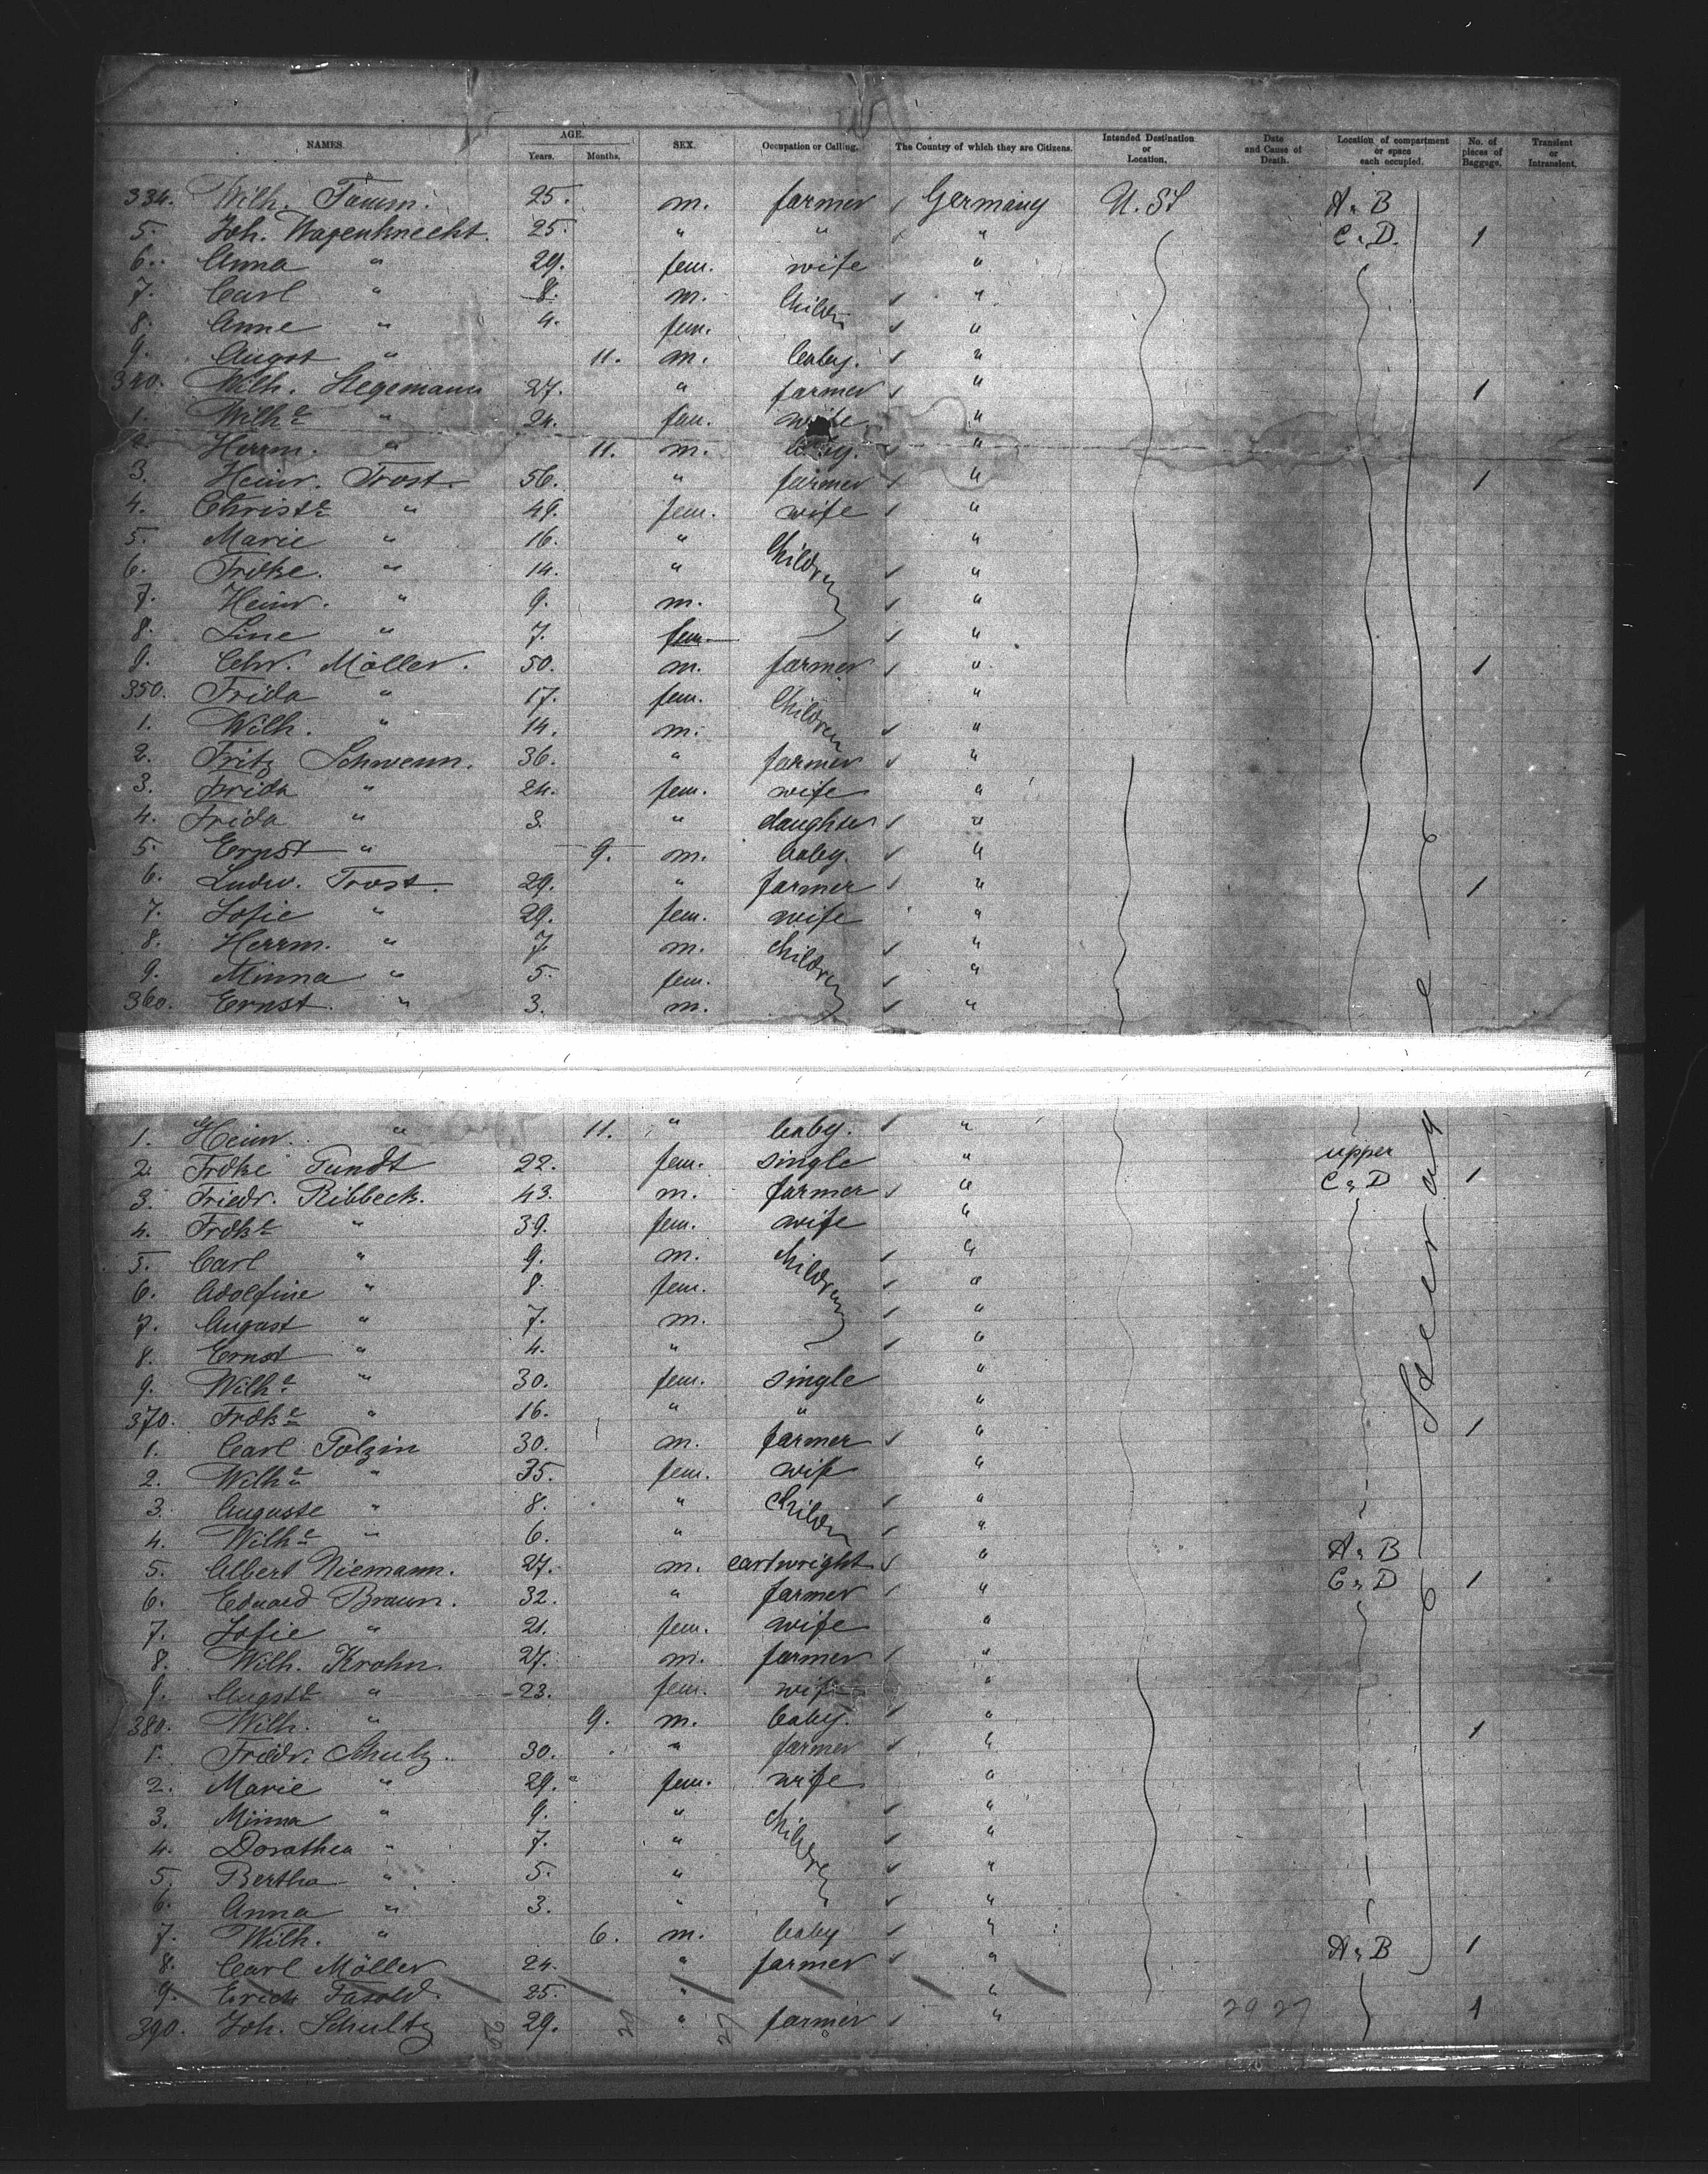 NAMES. AGE. Years. Months. SEX. Occupation or Calling. The Country of which they are Citizens. Intended Destination or Location. Date and Cause of Death. Location of compartment or space each occupied. No. of pieces of Baggage. Transient or Intransient.
334. Wilh. Tamm. 25. m. farmer Germany U. St A & B
5. Joh. Wagenknecht. 25. " " " C & D. 1
6. Anna " 29. fem. wife "
7. Carl " 8. m. Childr "
8. Anne " 4. fem. "
9. Augst " 11. m. baby. "
340. Wilh. Stegemann 27. " farmer " 1
1. Wilhe " 24. fem. wife "
2. Herrm. " 11. m. baby. "
3. Heinr. Trost. 56. " farmer " 1
4. Christe " 49. fem. wife "
5. Marie " 16. " Children "
6. Frdke. " 14. " "
7. Heinr. " 9. m. "
8. Line " 7. fem. "
9. Chr. Möller. 50. m. farmer " 1
350. Frida " 17. fem. Children "
1. Wilh. " 14. m. "
2. Fritz Schwenn. 36. " farmer "
3. Frida " 24. fem. wife "
4. Frida " 3. " daughter "
5. Ernst " 9. m. baby. "
6. Ludw. Trost. 29. " farmer " 1
7. Sofie " 29. fem. wife "
8. Herrm. " 7. m. Children "
9. Minna " 5. fem. "
360. Ernst. " 3. m. "
1. Heinr. " 11. " baby. "
2. Frdke Tundt 22. fem. single " upper
3. Friedr. Ribbeck. 43. m. farmer " C & D 1
4. Frdke " 39. fem. wife "
5. Carl " 9. m. Children "
6. Adolfine " 8. fem. "
7. August " 7. m. "
8. Ernst " 4. " "
9. Wilhe " 30. fem. single "
370. Frdke " 16. " " "
1. Carl Tolzin 30. m. farmer " 1
2. Wilhe " 35. fem. wife "
3. Auguste " 8. " Childr "
4. Wilhe " 6. " "
5. Albert Niemann. 27. m. cartwright " A & B
6. Eduard Braun. 32. " farmer " C & D 1
7. Sofie " 21. fem. wife "
8. Wilh. Krohn. 27. m. farmer "
9. Auguste " 23. fem. wife "
380. Wilh. " 9. m. baby. "
1. Friedr. Schulz. 30. " farmer " 1
2. Marie " 29. fem. wife "
3. Minna " 9. " Children "
4. Dorothea " 7. " "
5. Bertha " 5. " "
6. Anna " 3. " "
7. Wilh. " 6. m. baby "
8. Carl Möller 24. " farmer " A & B 1
9. Erich Fasold. 25. " "
390. Joh. Schultz 29. " farmer " 1
Steerage
29 27